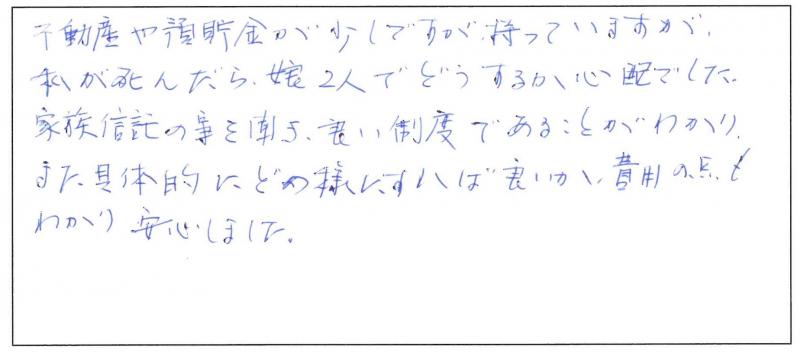 不動産や預貯金が少しですが、持っていますが、
私が死んだら、娘2人でどうするか、心配でした。
家族信託の事を聞き、良い制度であることがわかり、
また具体的にどの様にすれば良いか、費用の点も
わかり安心しました。